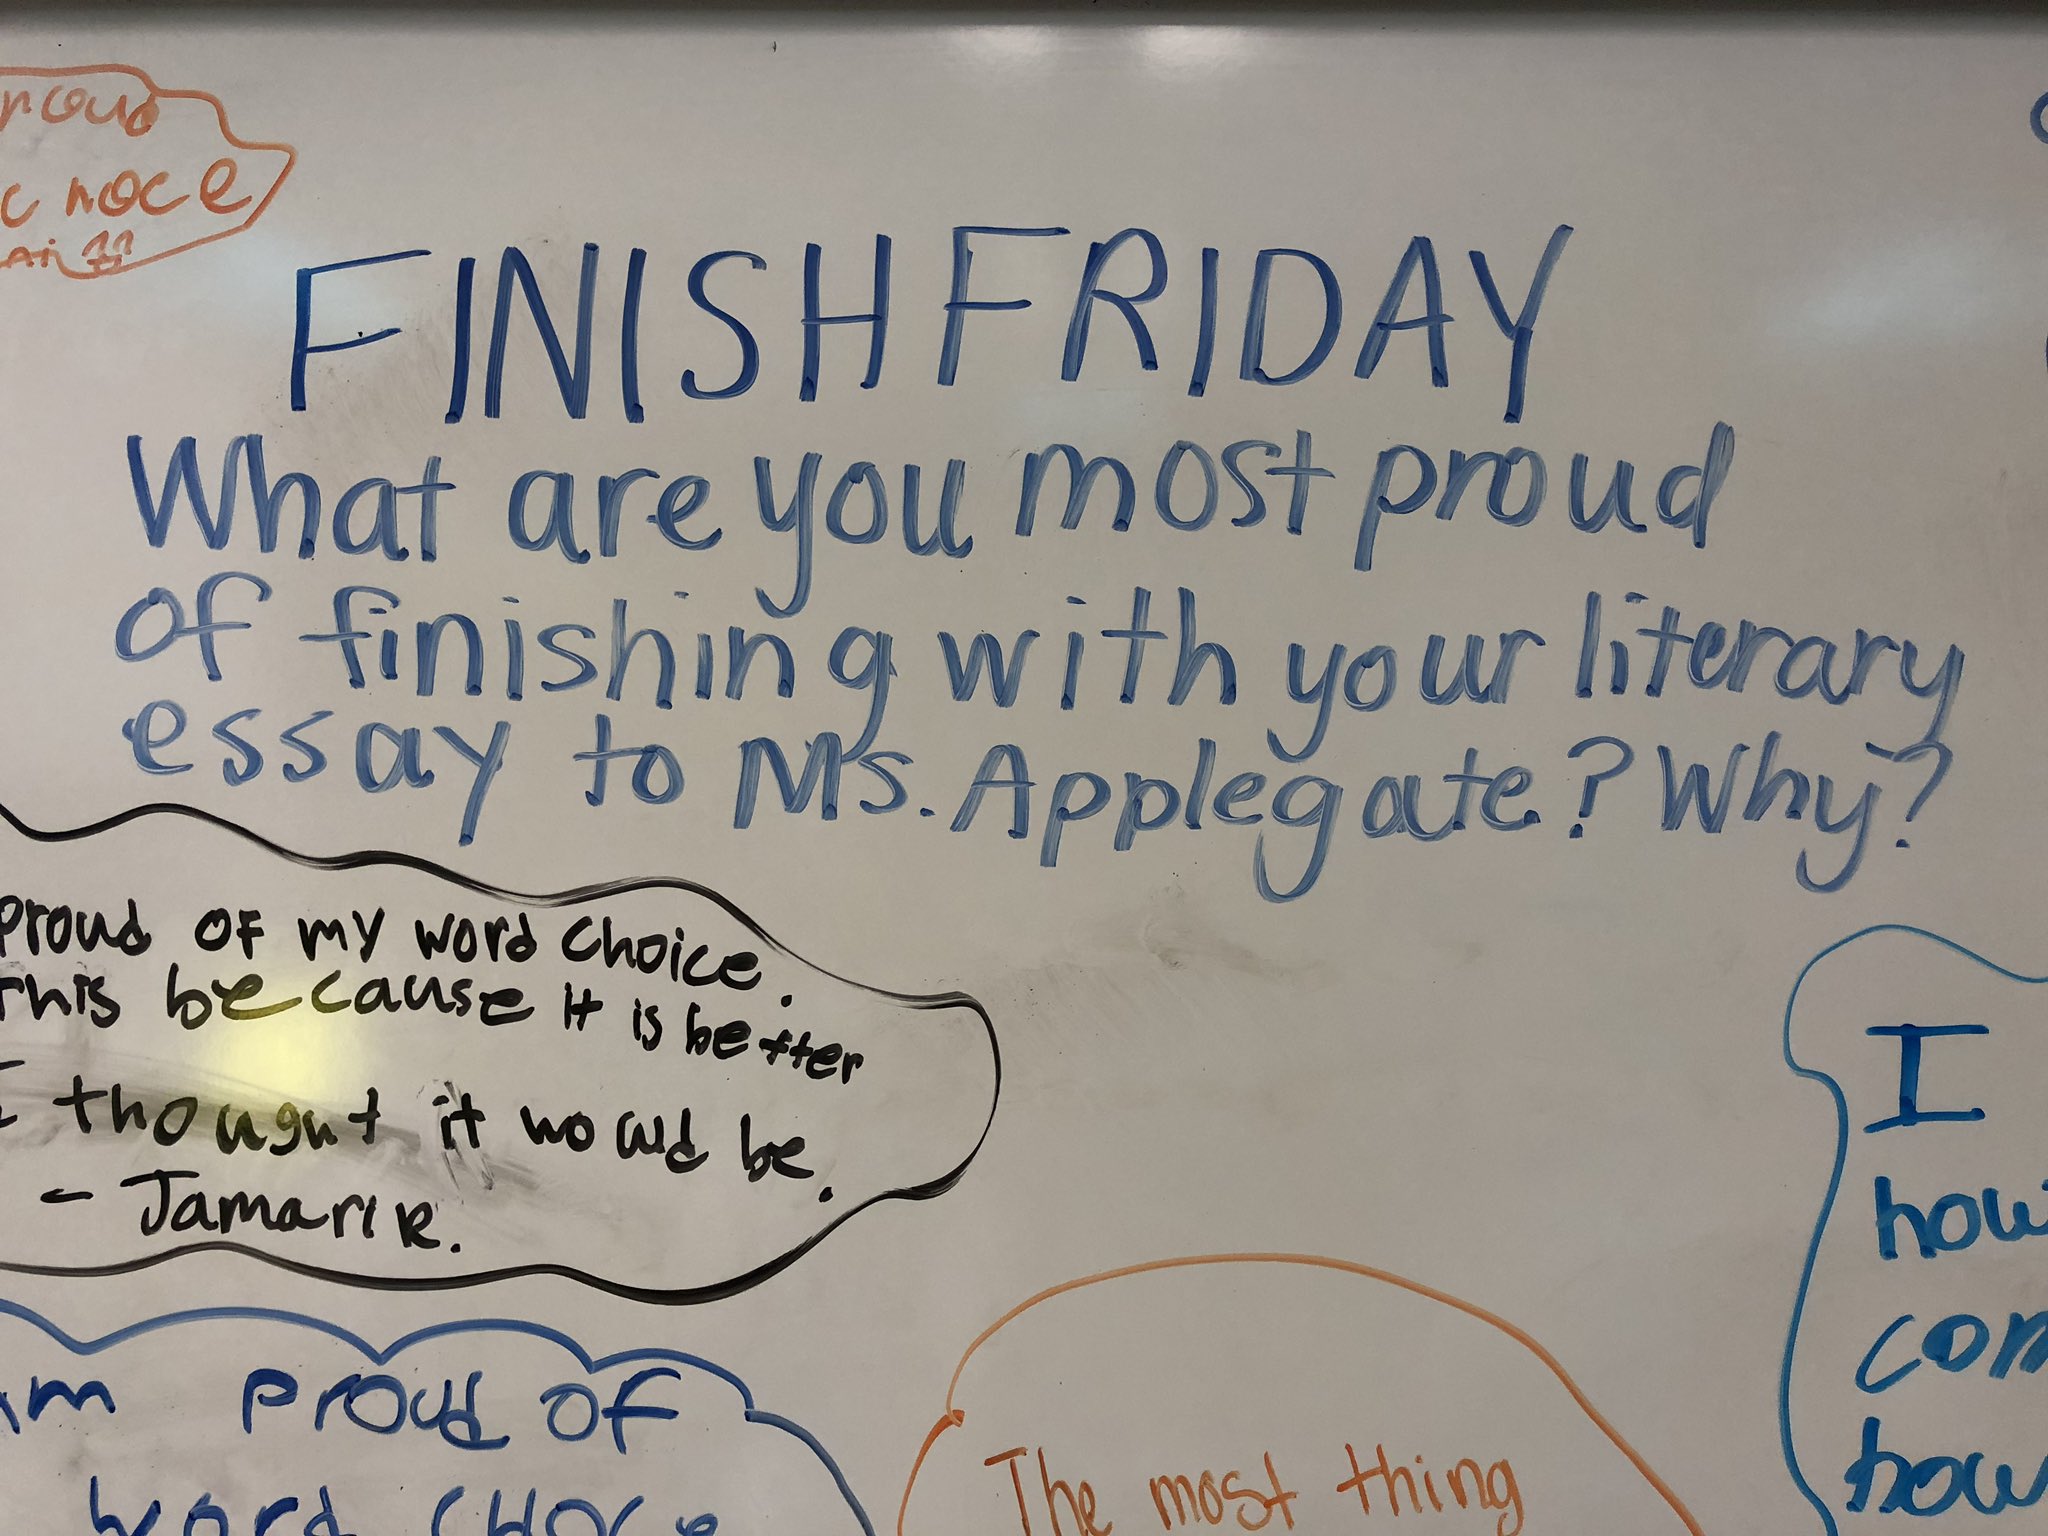 FINISH FRIDAY
What are you most proud
of finishing with your literary
essay to Ms. Applegate? Why?
proud
noce
Proud of my word choice.
This because it is better
I thought it would be.
- Jamarik.
am proud of
word choce
The most thing
I
how
com
how